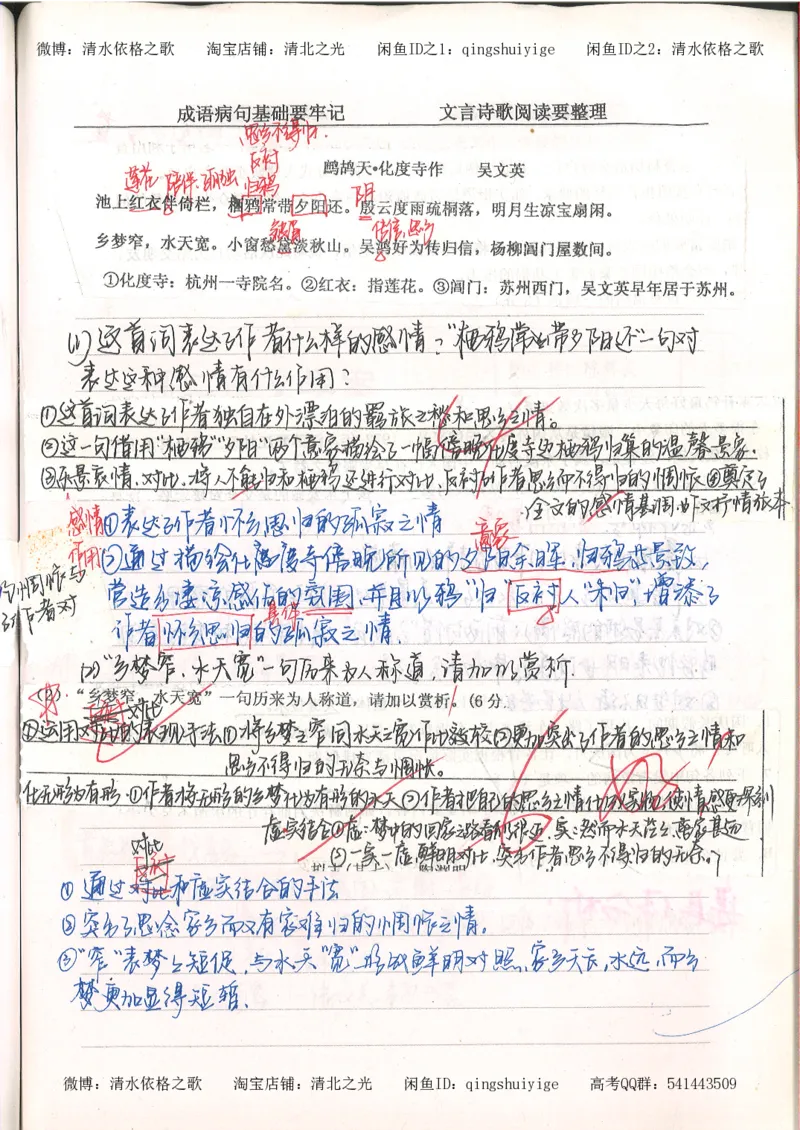 微博：清水依格之歌 淘宝店铺：清北之光 闲鱼ID之1：qingshuiyige 闲鱼ID之2：清水依格之歌
成语病句基础要牢记 文言诗歌阅读要整理
思乡不得归
反衬
鹧鸪天•化度寺作 吴文英
莲花 陪伴 孤独 归鸦 阴
池上红衣伴倚栏，栖鸦常带夕阳还。殷云度雨疏桐落，明月生凉宝扇闲。
乡梦窄，水天宽。小窗愁黛淡秋山。吴鸿好为传归信，杨柳阊门屋数间。
①化度寺：杭州一寺院名。②红衣：指莲花。③阊门：苏州西门，吴文英早年居于苏州。
(1) 这首词表达了作者什么样的感情？"栖鸦常带夕阳还"一句对
表达这种感情有什么作用？
①这首词表达了作者独自在外漂泊的羁旅之愁和思乡之情。
②这一句借用"栖鸦""夕阳"两个意象描绘了一幅傍晚化度寺边栖鸦归巢的温馨景象.
③乐景衬哀情.对比.将人不能归和栖鸦还进行对比,反衬作者思乡而不得归的惆怅 ④奠定了
全文的感情基调.
感情 ①表达了作者怀乡思归的孤寂之情
意象
作用 ②通过描绘在化度寺傍晚所见的夕阳余晖,归鸦共景致,
营造出凄凉感伤的氛围,并且以鸦"归"反衬人"未归",增添了
作者怀乡思归的孤寂之情.
(2) "乡梦窄,水天宽"一句历来为人称道,请加以赏析.
(2)."乡梦窄，水天宽"一句历来为人称道，请加以赏析。(6分
对比
①运用对比的表现手法①将乡梦之窄同水天之宽作比较②更加突出了作者的思乡之情和
思乡不得归的无奈与惆怅.
化无形为有形.①作者将无形的乡梦化为有形的水天
对比
反衬
① 通过对比和虚实结合的手法
② 突出了思念家乡而又有家难归的惆怅之情。
③"窄"表梦之短促,与水天"宽"形成鲜明对照,家乡天长,水远,而乡
梦更加显得短暂.
微博：清水依格之歌 淘宝店铺：清北之光 闲鱼ID：qingshuiyige 高考QQ群：541443509